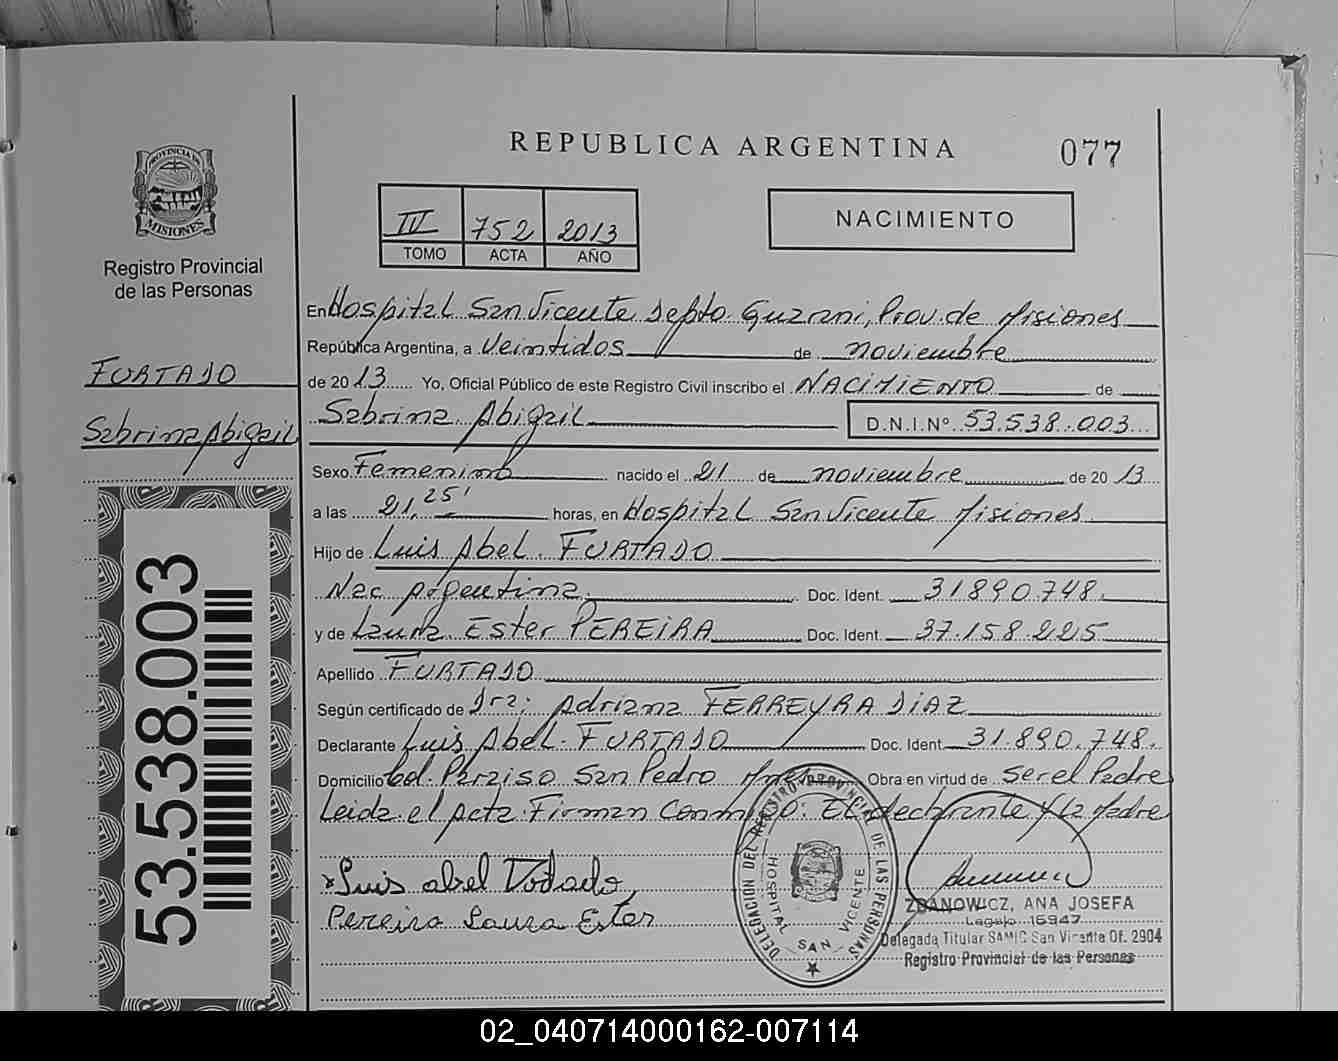 REPUBLICA ARGENTINA
077
PROVINCIA DE
MISIONES
Registro Provincial
de las Personas
IV 752 2013
TOMO ACTA AÑO
NACIMIENTO
En Hospital San Vicente Depto. Guarani, Prov. de Misiones
República Argentina, a Veintidos de noviembre
de 2013 Yo, Oficial Público de este Registro Civil inscribo el NACIMIENTO de
Sabrina Abigail D.N.I.Nº 53.538.003
FURTADO
Sabrina Abigail
Sexo Femenino nacido el 21 de noviembre de 2013
a las 21,25' horas, en Hospital San Vicente Misiones
Hijo de Luis Abel FURTADO
Nac Argentina Doc. Ident. 31890.748.
y de Laura Ester PEREIRA Doc. Ident. 37.158.225
Apellido FURTADO
Según certificado de Dra; Adriana FERREYRA DIAZ
Declarante Luis Abel FURTADO Doc. Ident. 31.890.748.
Domicilio Col. Paraiso San Pedro Mnes Obra en virtud de ser el Padre
Leida el Acta Firman Conmigo: El declarante y la Madre
Luis abel
Pereira Laura Ester
53.538.003
DELEGACION DEL REGISTRO PROVINCIAL DE LAS PERSONAS
HOSPITAL SAN VICENTE
ZDANOWICZ, ANA JOSEFA
Legajo 15947
Delegada Titular SAMIC San Vicente Of. 2904
Registro Provincial de las Personas
02_040714000162-007114